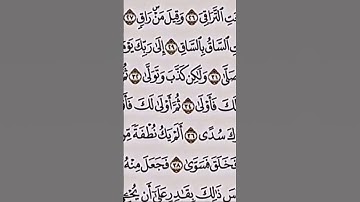 ـتِ التَّرَاقِيَ ٢٦ وَقِيلَ مَنْ ۜ رَاقٍ ٢٧
السَّاقُ بِالسَّاقِ ٢٩ إِلَىٰ رَبِّكَ
صَلَّىٰ ٣١ وَلَٰكِن كَذَّبَ وَتَوَلَّىٰ ٣٢ ثُمَّ
لَكَ فَأَوْلَىٰ ٣٤ ثُمَّ أَوْلَىٰ لَكَ فَأَ
ـكَ سُدًى ٣٦ أَلَمْ يَكُ نُطْفَةً مِّن
فَخَلَقَ فَسَوَّىٰ ٣٨ فَجَعَلَ مِنْهُ
ـسَ ذَٰلِكَ بِقَٰدِرٍ عَلَىٰ أَن يُحْـِۧ